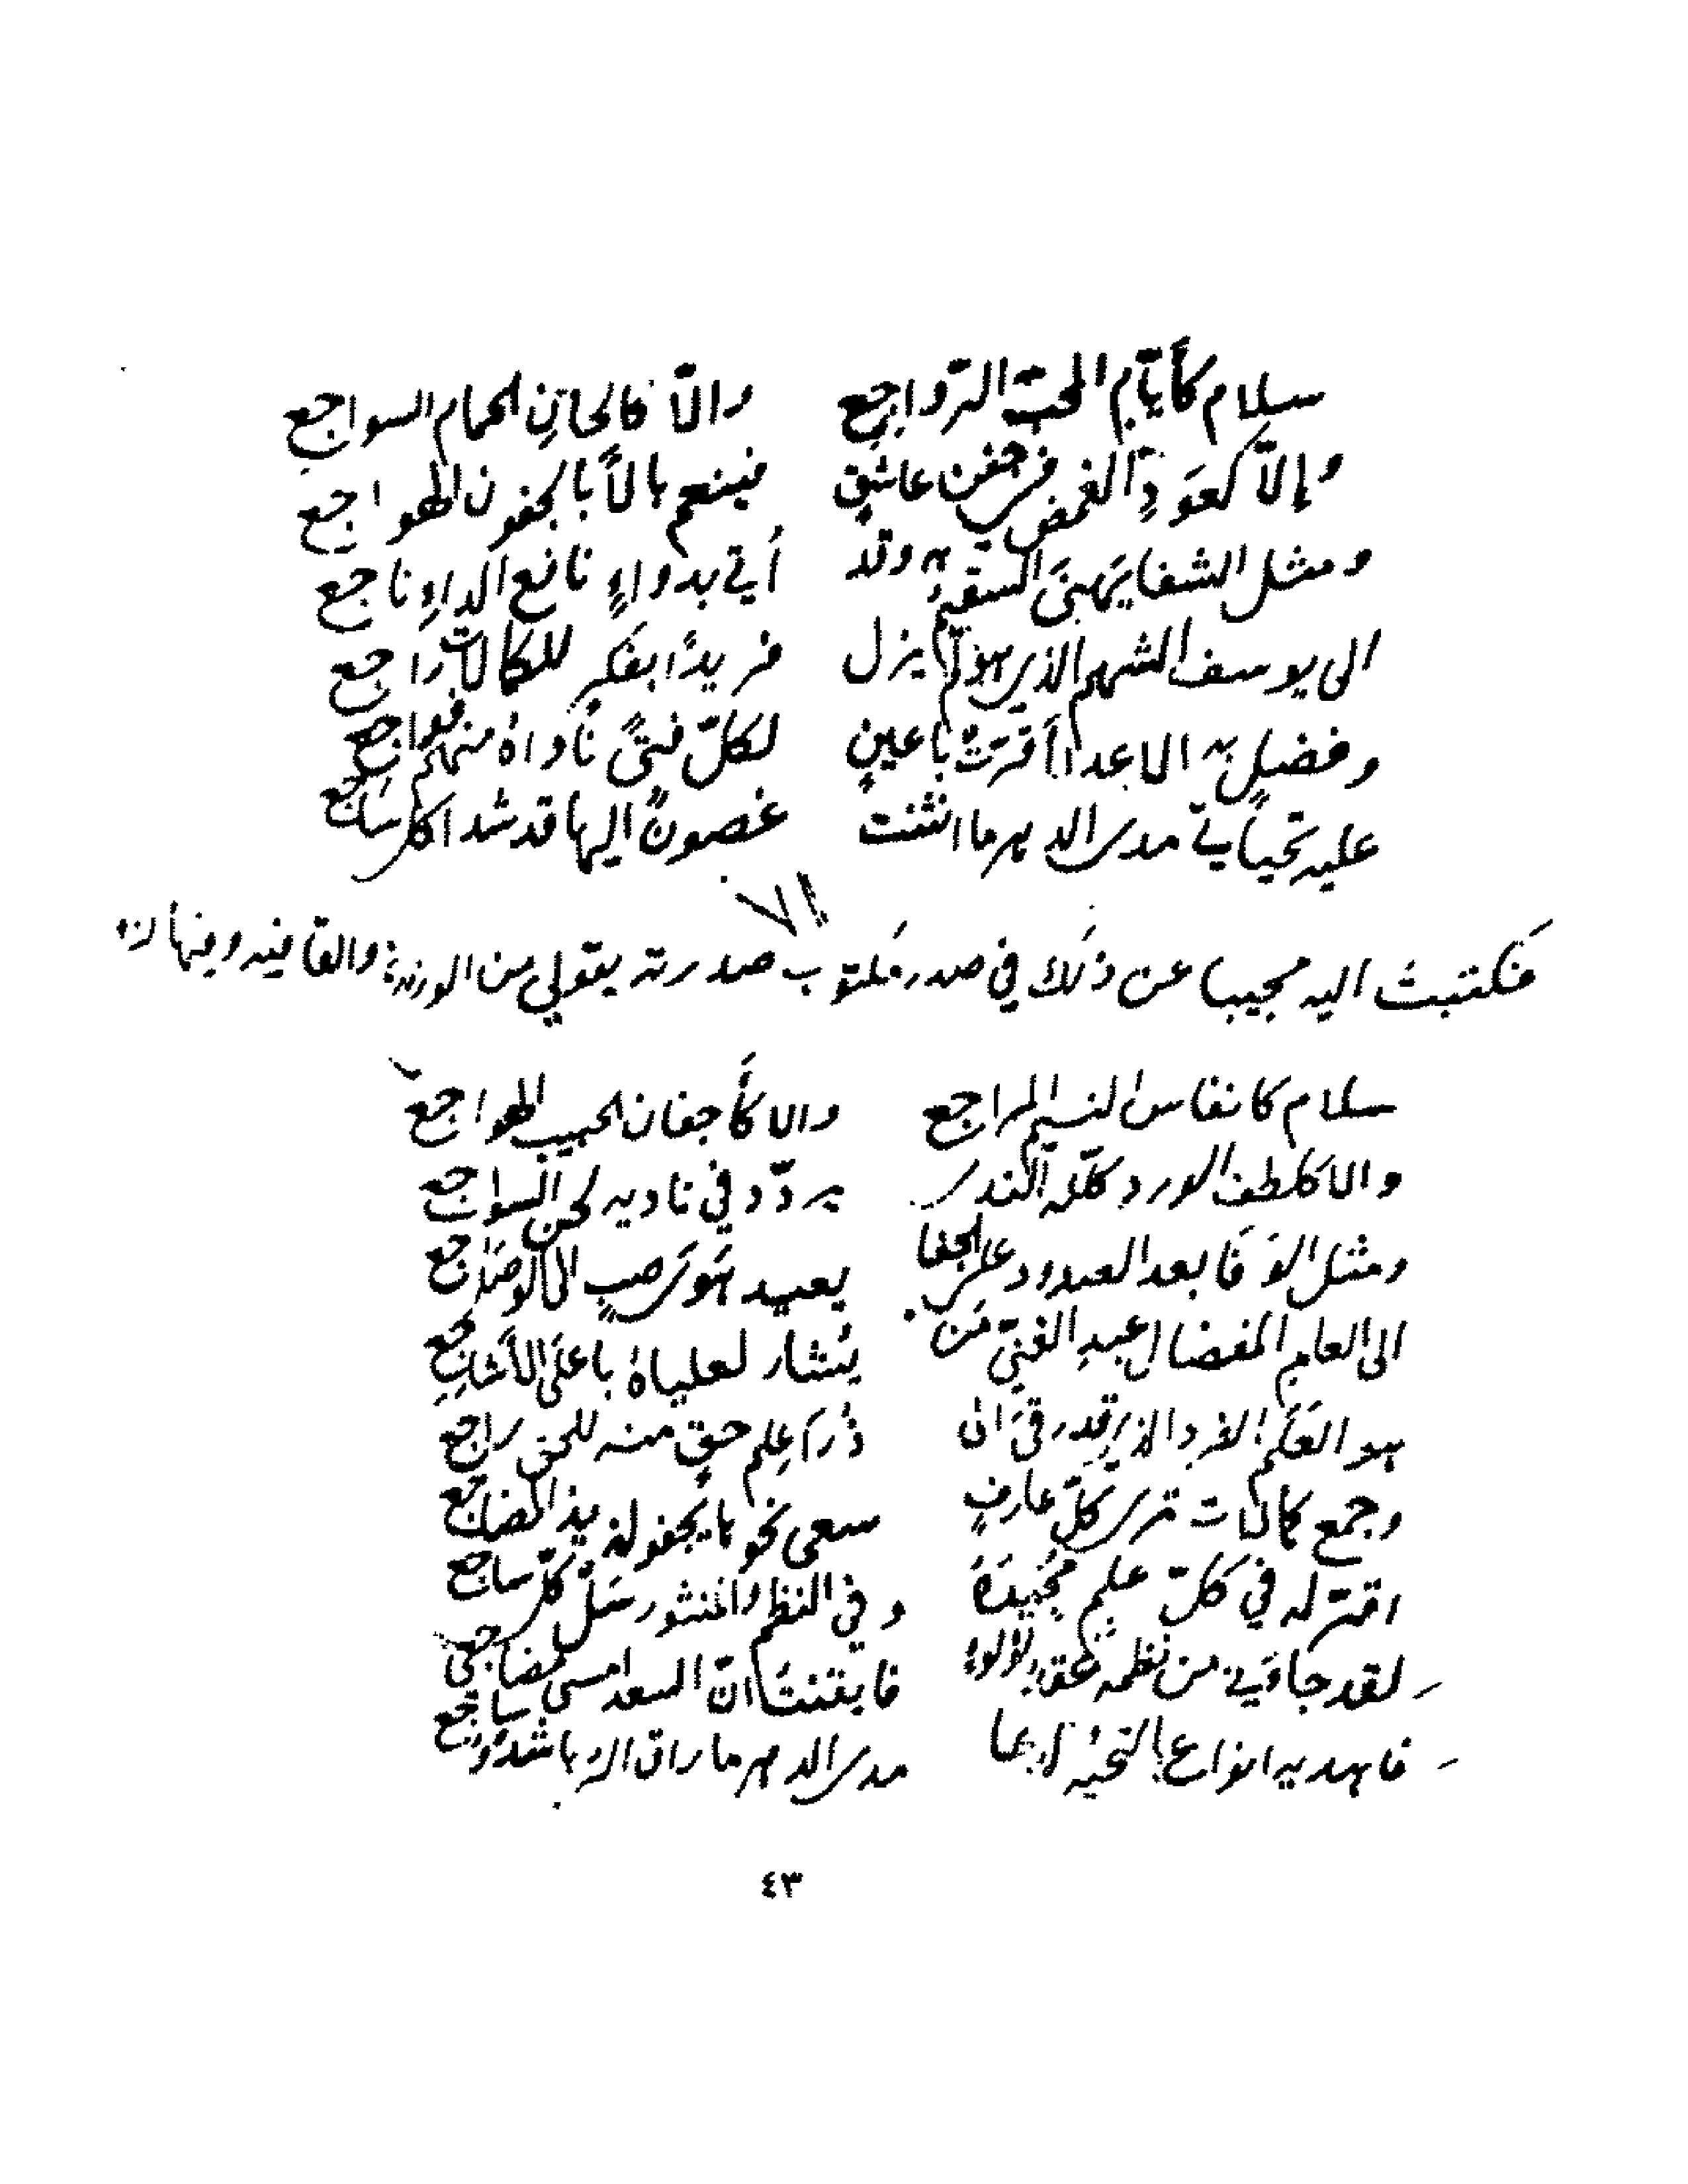 سلام كأيّام المحبّ الرّواجع والّا كالحانِ الحمام السواجع
وإلّا كعَودِ الغمض في جفن عاشقٍ فينعم بالاً بالجفون الهواجع
ومثل الشفا يَهنَى السقيمُ به وقد أتى بدواءٍ نافع الداءِ ناجع
الى يوسف الشهم الذي هو لم يزل فريدًا بفكرٍ للكمالات راجع
وفضلٍ به الاعدا أقرّت باعينٍ لكلّ فتىً ناواهُ منهم فواجع
عليه تحياتي مدى الدهر ما انثنت غصونٌ اليها قد شدا كل ساجع
٧١
فكتبت اليه مجيبا عن ذلك في صدر مكتوب صدرته بقولي من الوزن والقافيه
سلام كانفاس النسيم المراجع والا كأجفان الحبيب الهواجع
والا كلطف الورد كلّله الندى يردّد في ناديه لحن السواجع
ومثل الوَفَا بعد الصدود على الجفا يعيد هَوى صبٍ الى الوصل راجع
الى العالم المفضال عبدِ الغنيّ مَن يُشار لعلياهُ باعلَى الأشاجعِ
هو العَلَم الفرد الذي قد رقَى الى ذُرَى عِلم حقٍ منه للحق راجع
وجمع كمالات ترى كلّ عارفٍ سعى نحوها يجفو لذيذ المضاجع
اقرّ له في كلّ علمٍ مُجيدَهُ وفي النظم والمنثور سَل كلّ ساجع
لقد جاءني من نظمه عقد لؤلؤٍ فايقنتُ انّ السعد امسى مضاجعي
فاهديه انواع التحيّه مدى الدهر ما راق الربا شدو ساجع
٤٣